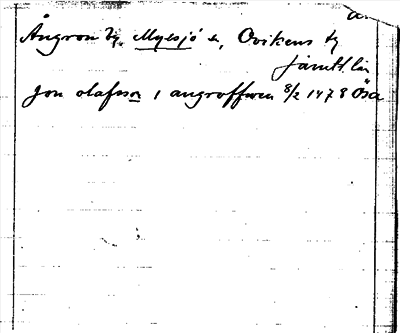 Ångron by, Myssjö sn, Ovikens tg
Jämtl. län
Jon olafsson i angroffwen 8/2 1478 Ösa